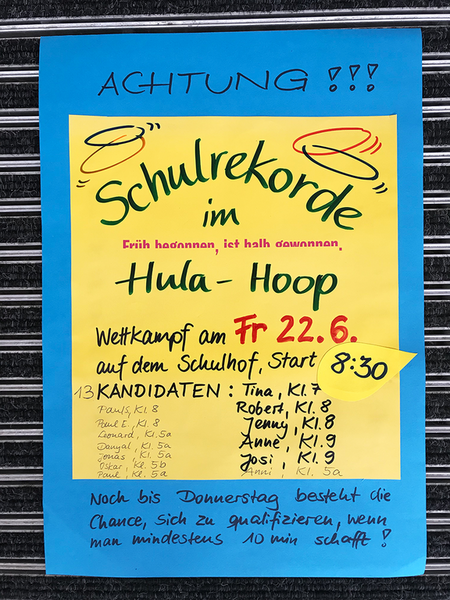 ACHTUNG !!!
Schulrekorde
im
Früh begonnen, ist halb gewonnen.
Hula - Hoop
Wettkampf am Fr 22.6.
auf dem Schulhof, Start 8:30
13 KANDIDATEN : Tina, Kl. 7
Paul S., Kl. 8 Robert, Kl. 8
Paul E., Kl. 8 Jenny, Kl. 8
Leonard, Kl. 5a Anne, Kl. 9
Danyal, Kl. 5a Josi, Kl. 9
Jonas, Kl. 5a Anni, Kl. 5a
Oskar, Kl. 5b
Paul, Kl. 5a
Noch bis Donnerstag besteht die
Chance, sich zu qualifizieren, wenn
man mindestens 10 min schafft !